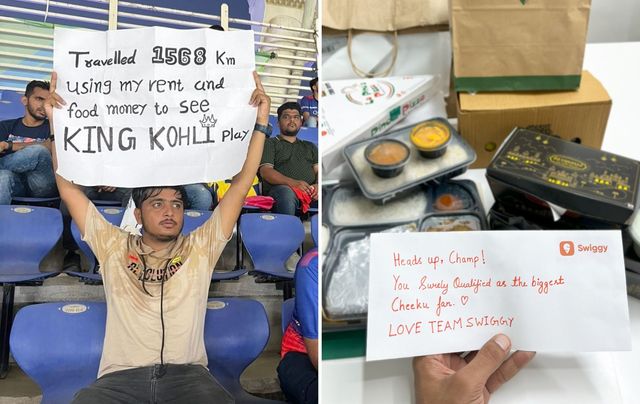 Travelled 1568 Km
using my rent and
food money to see
KING KOHLI play
REVOLUTION
Swiggy
Heads up, Champ!
You Surely Qualified as the biggest
Cheeku fan. ♡
LOVE TEAM SWIGGY